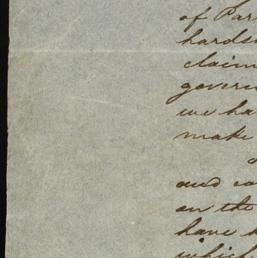 of Par
hards
claim
govern
we ha
make
and co
on the
have
which